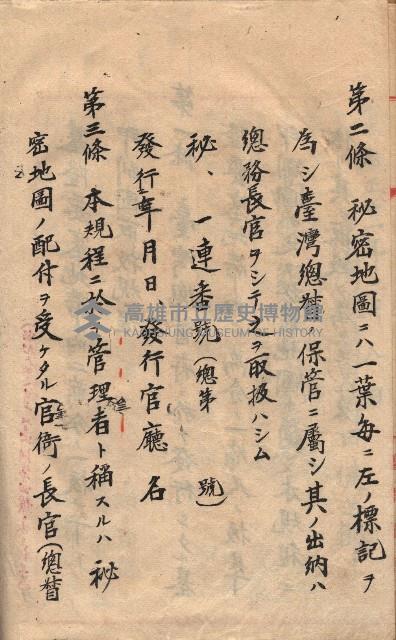 第二條 秘密地圖ニハ一葉每ニ左ノ標記ヲ
為シ臺灣總督ノ保管ニ屬シ其ノ出納ハ
總務長官ヲシテ之ヲ取扱ハシム
秘、一連番號(總第 號)
發行年月日、發行官廳名
第三條 本規程ニ於テ管理者ト稱スルハ秘
密地圖ノ配付ヲ受ケタル官衙ノ長官(總督
高雄市立歷史博物館
KAOHSIUNG MUSEUM OF HISTORY